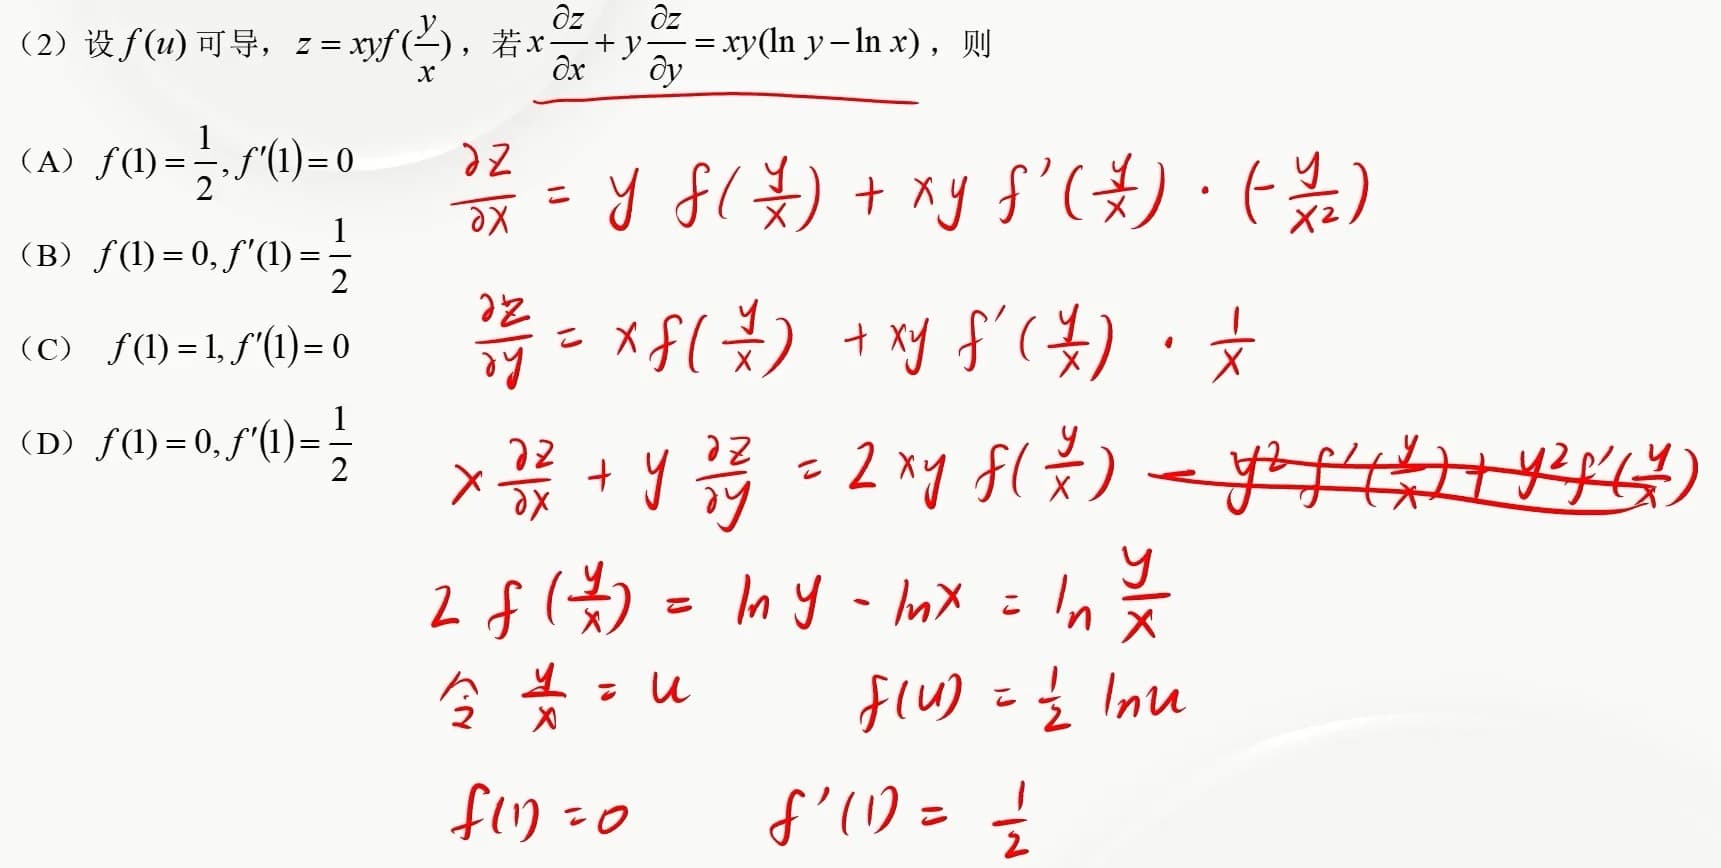 （2）设 f(u) 可导，z = xyf(y/x)，若 x ∂z/∂x + y ∂z/∂y = xy(ln y − ln x)，则
（A） f(1) = 1/2, f′(1) = 0
（B） f(1) = 0, f′(1) = 1/2
（C） f(1) = 1, f′(1) = 0
（D） f(1) = 0, f′(1) = 1/2
∂z/∂x = y f(y/x) + xy f′(y/x) · (−y/x²)
∂z/∂y = x f(y/x) + xy f′(y/x) · 1/x
x ∂z/∂x + y ∂z/∂y = 2xy f(y/x) − y² f′(y/x) + y² f′(y/x)
2 f(y/x) = ln y − ln x = ln y/x
令 y/x = u f(u) = 1/2 ln u
f(1) = 0 f′(1) = 1/2